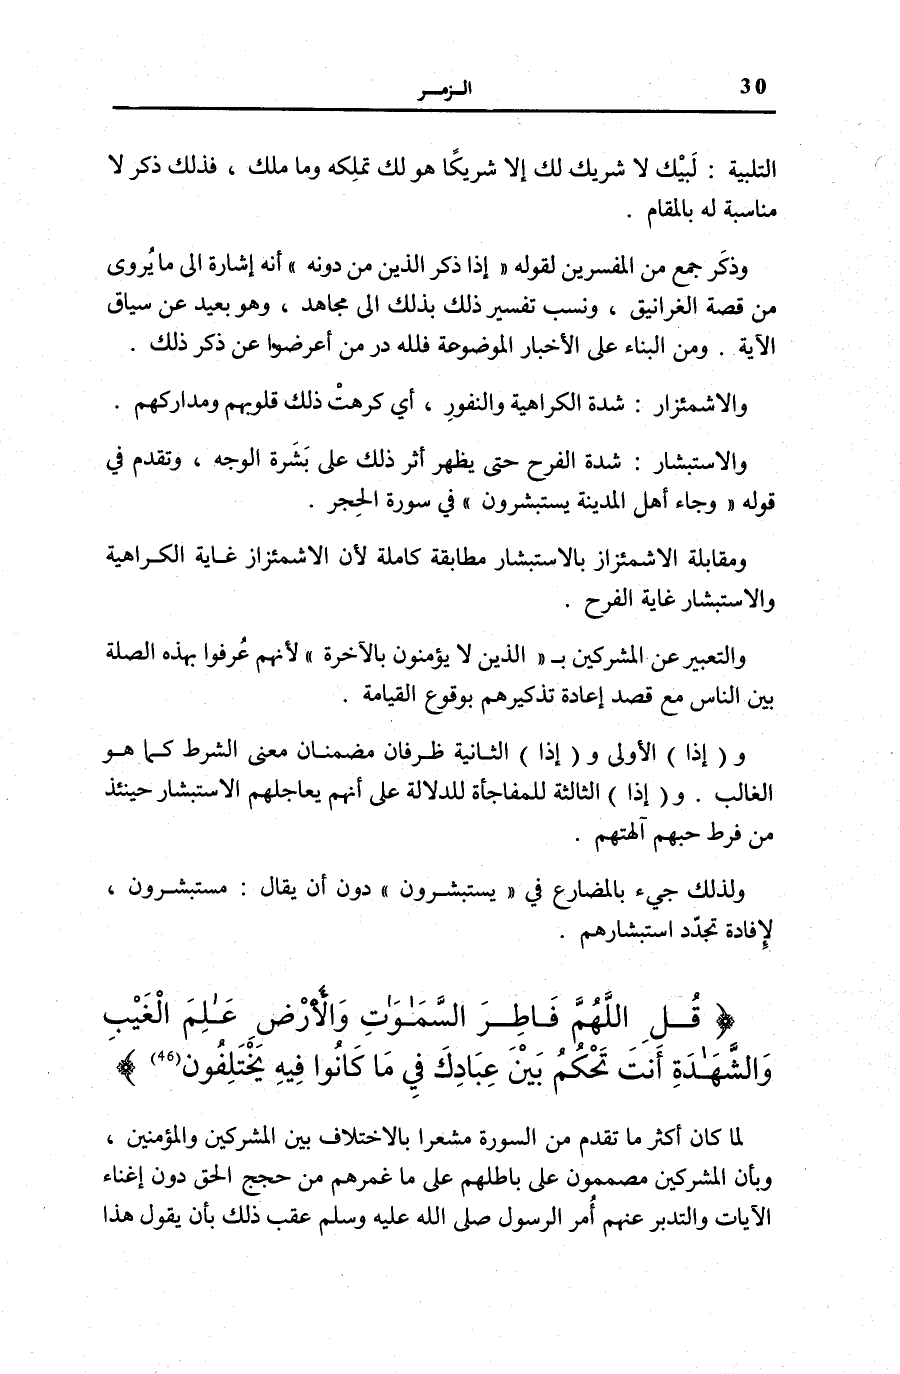 30
الـزمـر
التلبية : لَبيْك لا شريك لك إلا شريكًا هو لك تملِكه وما ملك ، فذلك ذكر لا
مناسبة له بالمقام .
وذكَر جمع من المفسرين لقوله « إذا ذكر الذين من دونه » أنه إشارة الى ما يُروى
من قصة الغرانيق ، ونسب تفسير ذلك بذلك الى مجاهد ، وهو بعيد عن سياق
الآية . ومن البناء على الأخبار الموضوعة فلله در من أعرضوا عن ذكر ذلك .
والاشمئزار : شدة الكراهية والنفورِ ، أي كرهتْ ذلك قلوبهم ومداركهم .
والاستبشار : شدة الفرح حتى يظهر أثر ذلك على بَشَرة الوجه ، وتقدم في
قوله « وجاء أهل المدينة يستبشرون » في سورة الحِجر .
ومقابلة الاشمئزاز بالاستبشار مطابقة كاملة لأن الاشمئزاز غـاية الكـراهية
والاستبشار غاية الفرح .
والتعبير عن المشركين بـ « الذين لا يؤمنون بالآخرة » لأنهم عُرفوا بهذه الصلة
بين الناس مع قصد إعادة تذكيرهم بوقوع القيامة .
و ( إذا ) الأولى و ( إذا ) الثـانية ظـرفان مضمنـان معنى الشرط كـما هـو
الغالب . و ( إذا ) الثالثة للمفاجأة للدلالة على أنهم يعاجلهم الاستبشار حينئذ
من فرط حبهم آلهتهم .
ولذلك جيء بالمضارع في « يستبشـرون » دون أن يقال : مستبشـرون ،
لإِفادة تجدّد استبشارهم .
﴿ قُــلِ اللَّهُمَّ فَـاطِــرَ السَّمَـٰوَٰتِ وَالْأَرْضِ عَـٰلِمَ الْغَيْبِ
وَالشَّهَـٰدَةِ أَنتَ تَحْكُمُ بَيْنَ عِبَادِكَ فِي مَا كَانُوا فِيهِ يَخْتَلِفُون(46) ﴾
لما كان أكثر ما تقدم من السورة مشعرا بالاختلاف بين المشركين والمؤمنين ،
وبأن المشركين مصممون على باطلهم على ما غمرهم من حجج الحق دون إغناء
الآيات والتدبر عنهم أُمر الرسول صلى الله عليه وسلم عقب ذلك بأن يقول هذا